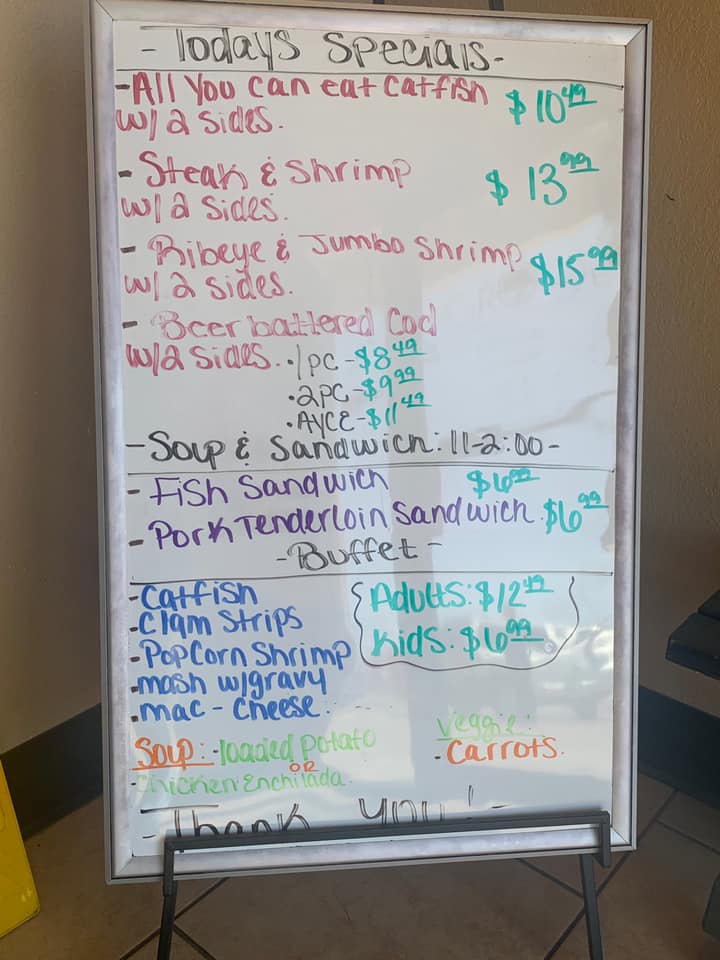 - Todays Specials-
-All You can eat catfish $10.49
w/ 2 sides.
- Steak & Shrimp $13.99
w/ 2 sides.
- Ribeye & Jumbo Shrimp $15.99
w/ 2 sides.
- Beer battered Cod
w/2 sides. • 1 pc -$8.49
•2pc-$9.99
•AYCE-$11.49
-Soup & Sandwich: 11-2:00-
- Fish Sandwich $6.99
- Pork Tenderloin Sandwich $6.99
-Buffet-
-Catfish Adults: $12.49
-Clam Strips Kids: $6.99
-PopCorn Shrimp
-mash w/gravy
-mac-cheese.
Soup: -loaded potato Veggie:
OR -Carrots.
-Chicken Enchilada.
- Thank You! -